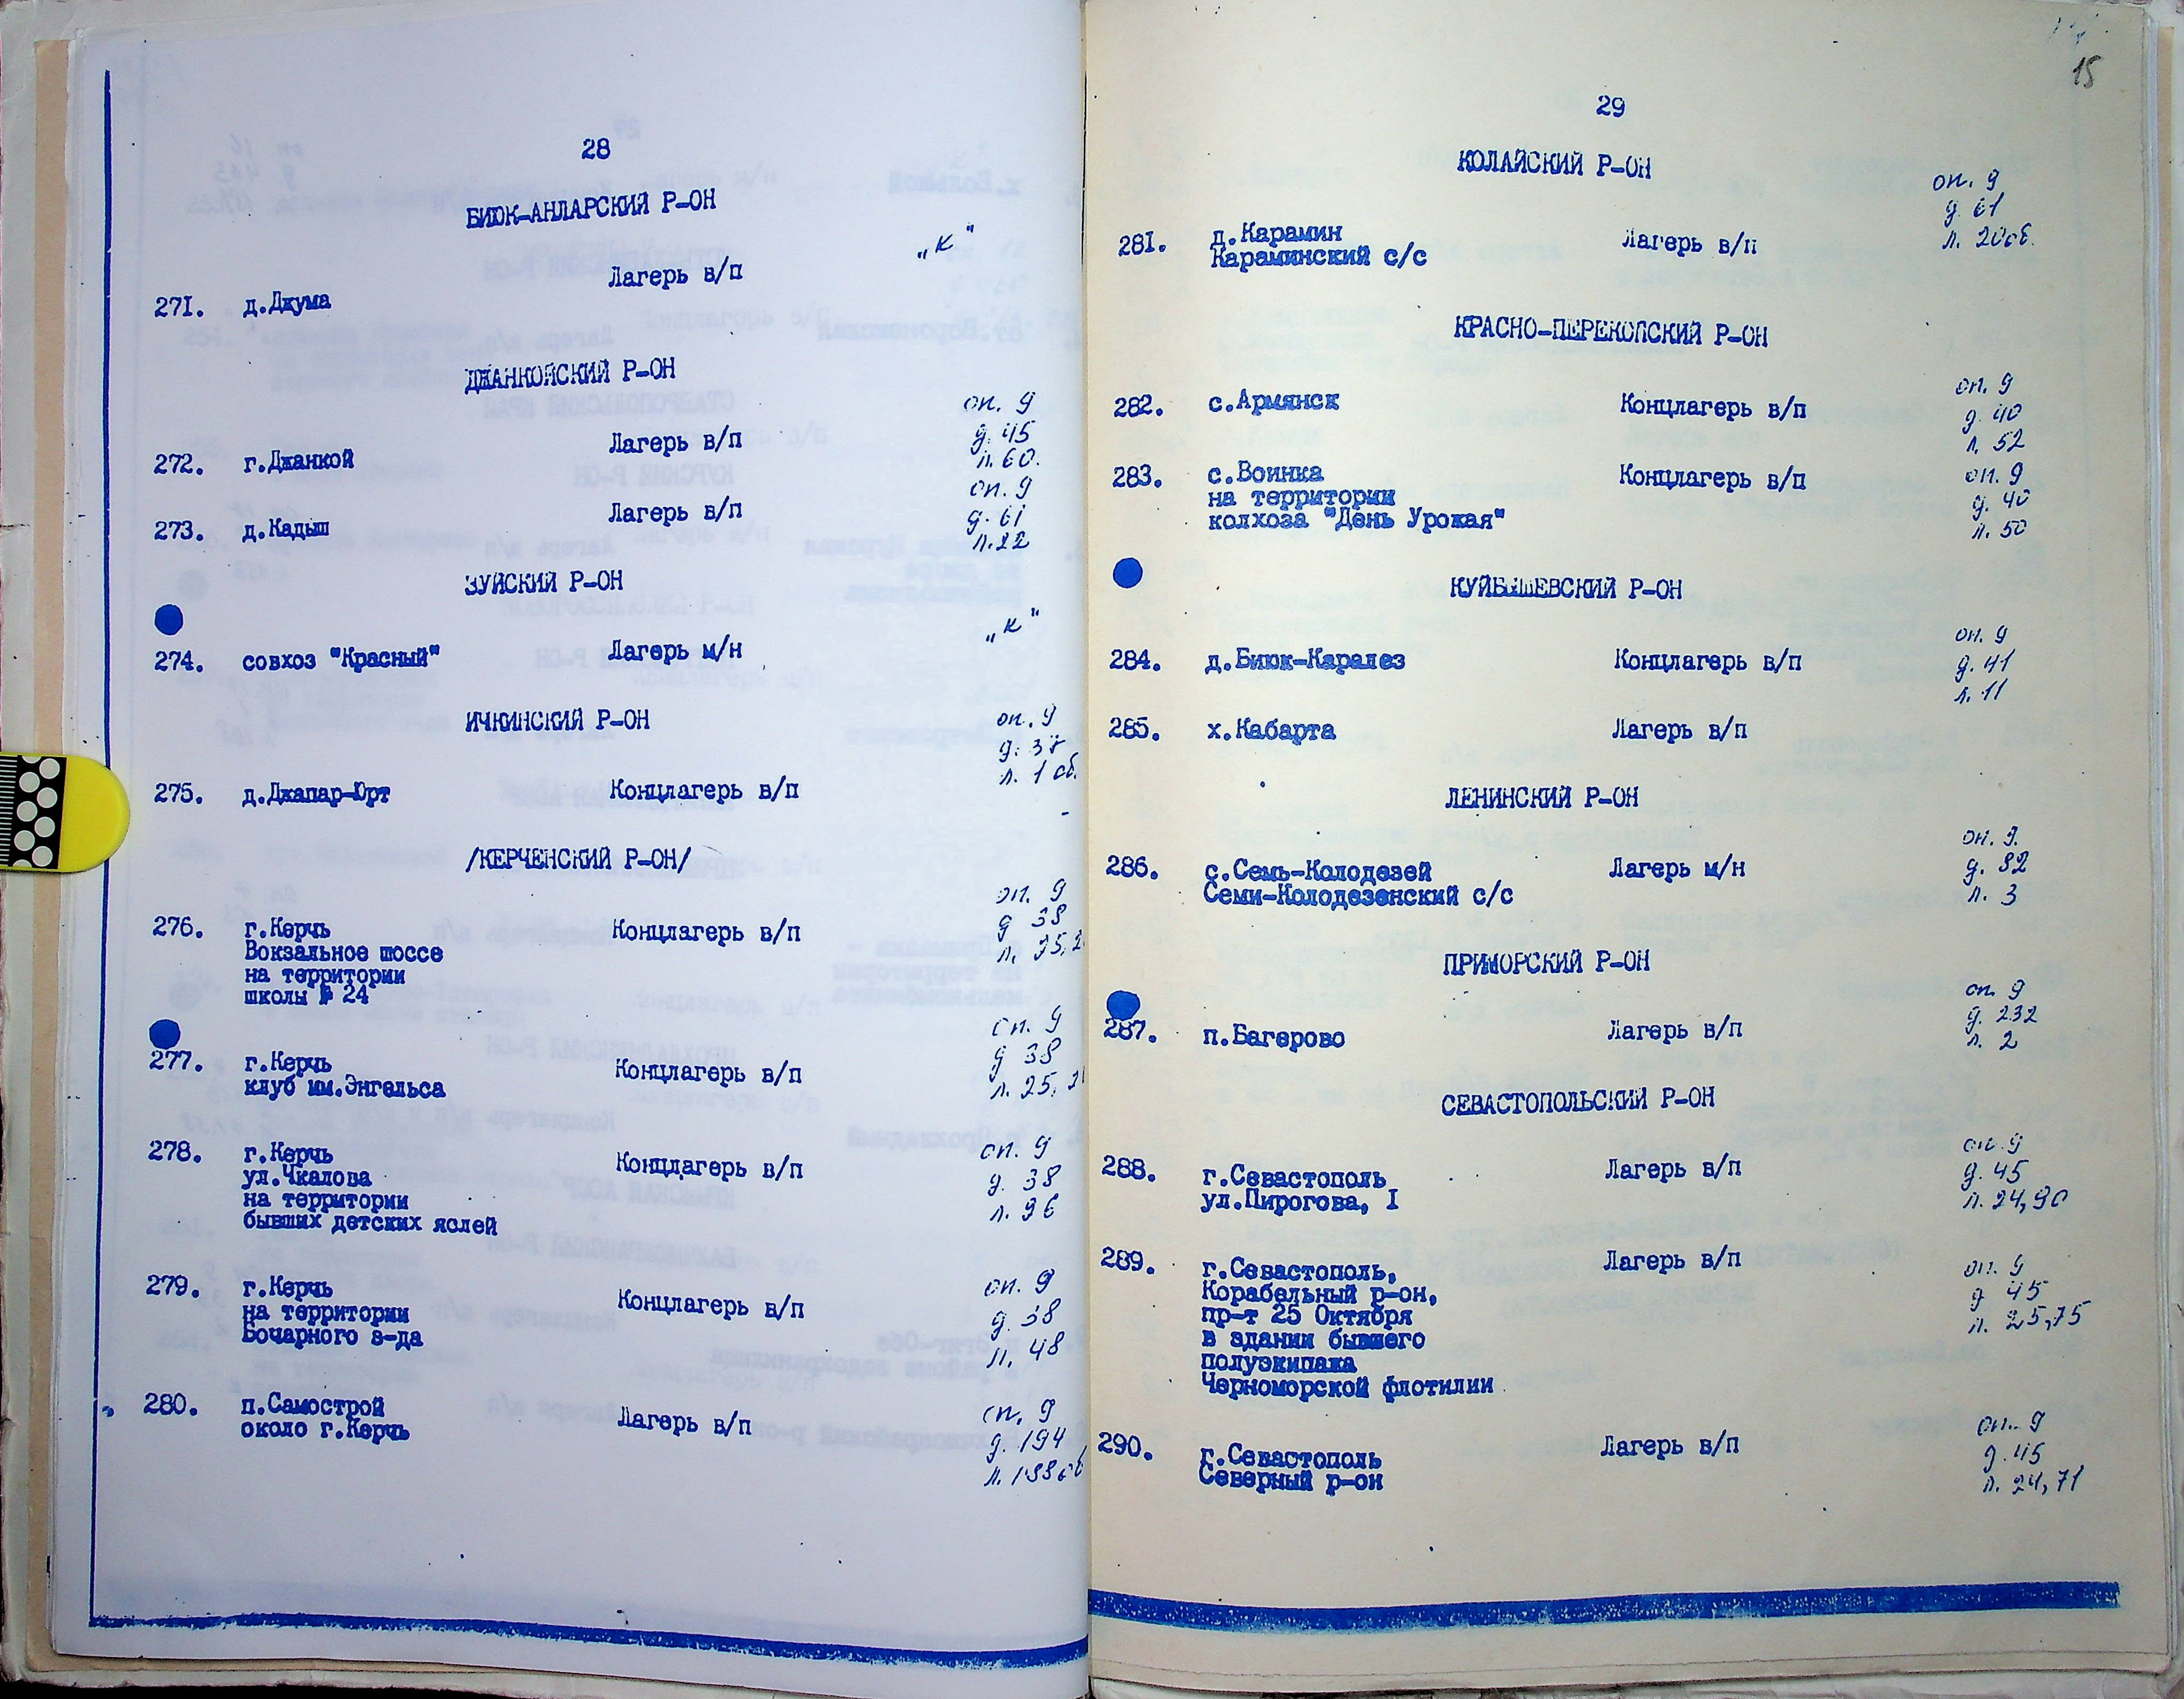 28
БИЮК-АНЛАРСКИЙ Р-ОН
"К"
Лагерь в/п
271. д.Джума
ДЖАНКОЙСКИЙ Р-ОН
оп. 9
Лагерь в/п д. 45
272. г.Джанкой л. 60.
оп. 9
Лагерь в/п д. 61
273. д.Кадыш л. 22
ЗУЙСКИЙ Р-ОН
"К"
274. совхоз "Красный" Лагерь м/н
ИЧКИНСКИЙ Р-ОН оп. 9
д. 37
л. 1 об.
275. д.Джапар-Юрт Концлагерь в/п
/КЕРЧЕНСКИЙ Р-ОН/
оп. 9
276. г.Керчь Концлагерь в/п д 38
Вокзальное шоссе л.
на территории
школы № 24
оп. 9
д 38
277. г.Керчь Концлагерь в/п
клуб им.Энгельса л. 25,
278. г.Керчь Концлагерь в/п оп. 9
ул.Чкалова д. 38
на территории л. 96
бывших детских яслей
279. г.Керчь Концлагерь в/п оп. 9
на территории д. 38
Бочарного з-да л. 48
280. п.Самострой Лагерь в/п оп. 9
около г.Керчь д. 194
л.
15
29
КОЛАЙСКИЙ Р-ОН
оп. 9
д. 61
281. д.Карамин Лагерь в/п л. 20об.
Караминский с/с
КРАСНО-ПЕРЕКОПСКИЙ Р-ОН
оп. 9
282. с.Армянск Концлагерь в/п д. 40
л. 52
283. с.Воинка Концлагерь в/п оп. 9
на территории д. 40
колхоза "День Урожая" л. 50
КУЙБЫШЕВСКИЙ Р-ОН
оп. 9
284. д.Биюк-Каралез Концлагерь в/п д. 41
л. 11
285. х.Кабарта Лагерь в/п
ЛЕНИНСКИЙ Р-ОН
оп. 9.
286. с.Семь-Колодезей Лагерь м/н д. 82
Семи-Колодезенский с/с л. 3
ПРИМОРСКИЙ Р-ОН
оп. 9
287. п.Багерово Лагерь в/п д. 232
л. 2
СЕВАСТОПОЛЬСКИЙ Р-ОН
оп. 9
288. г.Севастополь Лагерь в/п д. 45
ул.Пирогова, I л. 24,90
289. г.Севастополь, Лагерь в/п оп. 9
Корабельный р-он, д 45
пр-т 25 Октября л. 25,75
в здании бывшего
полуэкипажа
Черноморской флотилии
оп. 9
290. г.Севастополь Лагерь в/п д. 45
Северный р-он л. 24,71